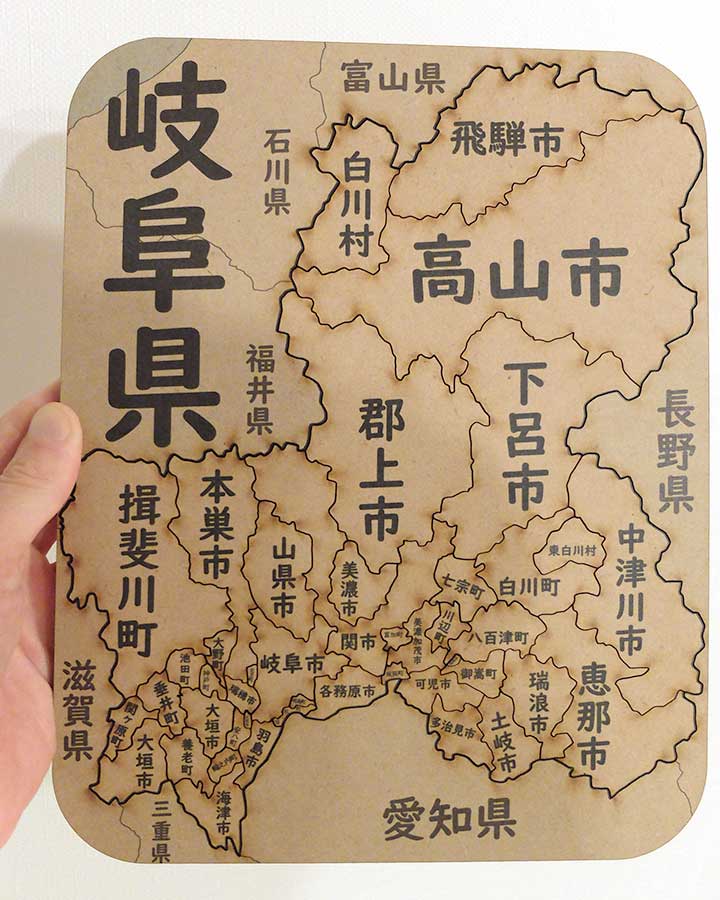 岐阜県
富山県
石川県
福井県
長野県
滋賀県
三重県
愛知県
飛騨市
白川村
高山市
下呂市
郡上市
本巣市
揖斐川町
山県市
美濃市
中津川市
東白川村
白川町
七宗町
川辺町
八百津町
美濃加茂市
富加町
関市
岐阜市
各務原市
坂祝町
可児市
御嵩町
瑞浪市
恵那市
土岐市
多治見市
大野町
池田町
神戸町
瑞穂市
垂井町
関ヶ原町
大垣市
大垣市
養老町
輪之内町
羽島市
海津市